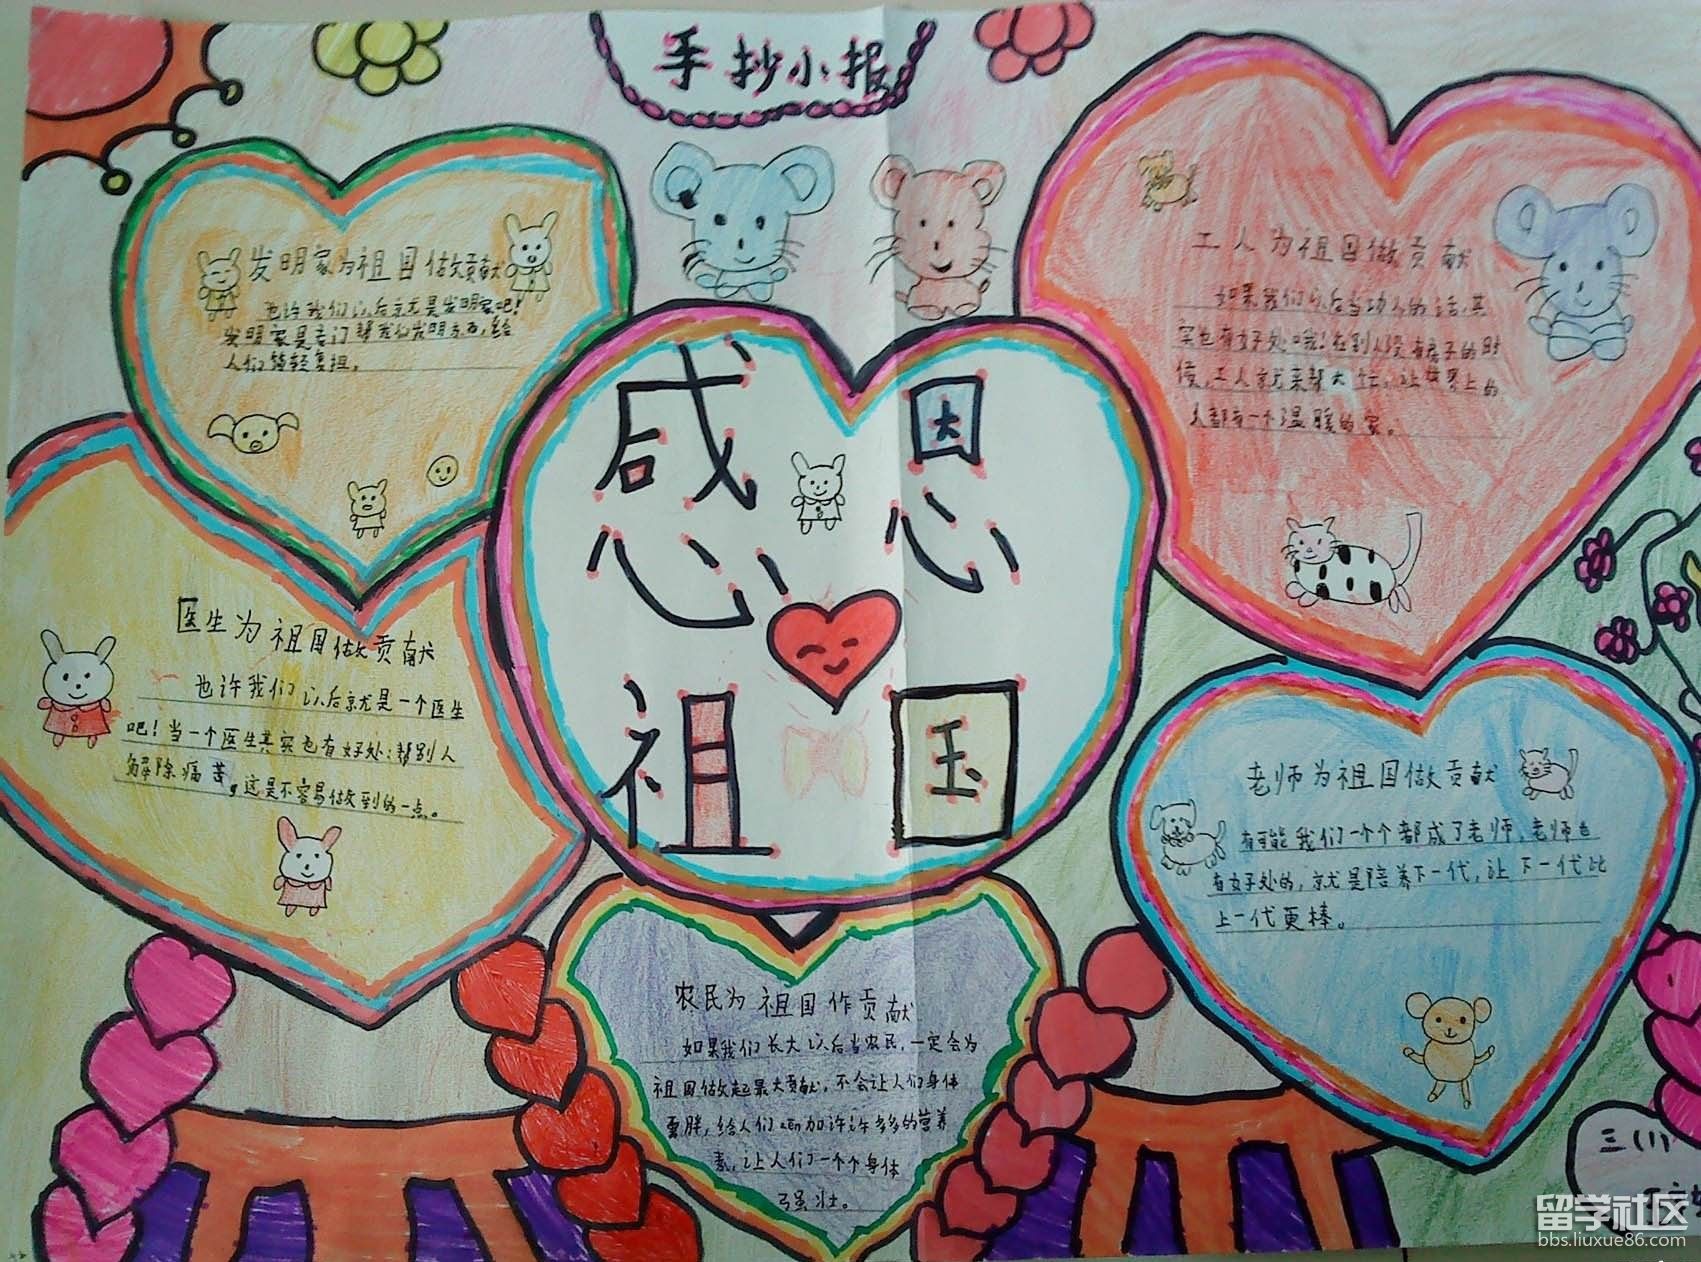 手抄小报
发明家为祖国做贡献
也许我们以后就是发明家吧！
发明家是专门帮我们发明东西，给
人们减轻负担。
工人为祖国做贡献
如果我们以后当功人的话，其
实也有好处哦！在别人没有房子的时
候，工人就来帮大忙，让世界上的
人都有一个温暖的家。
感恩
祖国
医生为祖国做贡献
也许我们以后就是一个医生
吧！当一个医生其实也有好处：帮别人
解除痛苦，这是不容易做到的一点。
老师为祖国做贡献
有可能我们一个个都成了老师，老师也
有好处的，就是陪养下一代，让下一代比
上一代更棒。
农民为祖国作贡献
如果我们长大以后当农民，一定会为
祖国做起最大贡献，不会让人们身体
要胖，给人们zēn加许许多多的营养
素，让人们一个个身体
强壮。
三(1)
留学社区
bbs.liuxue86.com